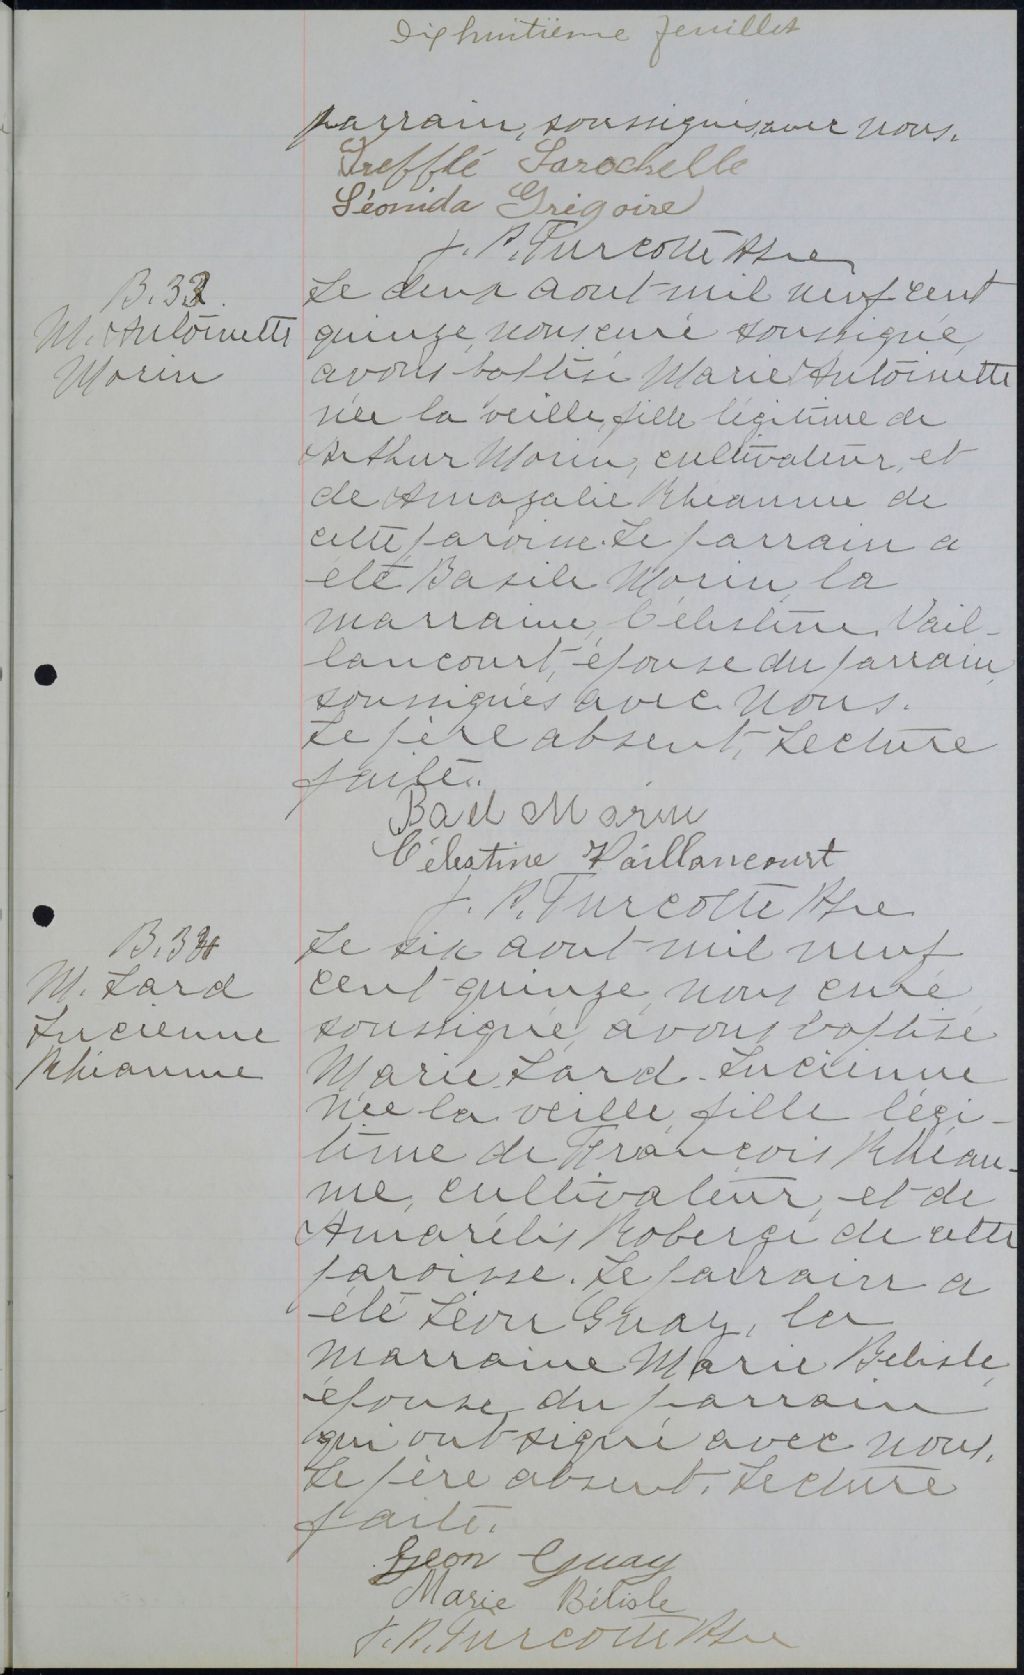 Dixhuitième feuillet
parrain, soussignés avec nous.
Trefflé Larochelle
Léonida Grégoire
J. P. Turcotte Ptre
B. 33
M. Antoinette
Morin
Le deux aout mil neuf cent
quinze, nous curé soussigné,
avons baptisé Marie Antoinette
née la veille, fille légitime de
Arthur Morin, cultivateur, et
de Amazalie Rhéaume de
cette paroisse. Le parrain a
été Basile Morin, la
marraine, Célestine Vail-
lancourt, épouse du parrain,
soussignés avec nous.
Le père absent, Lecture
faite.
Morin
Célestine Vaillancourt
J. P. Turcotte Ptre
B. 34
M. Lard
Lucienne
Rhéaume
Le six aout mil neuf
cent quinze, nous curé
soussigné, avons baptisé
Marie Lard Lucienne
née la veille, fille légi-
time de François Rhéau-
me, cultivateur, et de
Amarélis Roberge de cette
paroisse. Le parrain a
été Léon Guay, la
marraine Marie Belisle,
épouse du parrain
qui ont signé avec nous.
Le père absent. Lecture
faite.
Léon Guay
Marie Bélisle
J. P. Turcotte Ptre